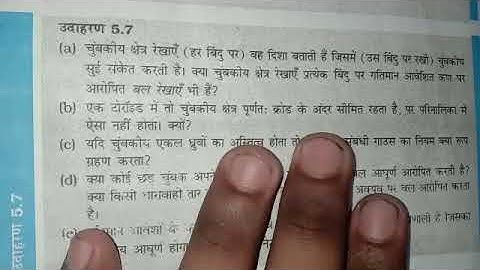 उदाहरण 5.7
(a) चुंबकीय क्षेत्र रेखाएँ (हर बिंदु पर) वह दिशा बताती हैं जिसमें (उस बिंदु पर रखी) चुंबकीय
सुई संकेत करती है। क्या चुंबकीय क्षेत्र रेखाएँ प्रत्येक बिंदु पर गतिमान आवेशित कण पर
आरोपित बल रेखाएँ भी हैं?
(b) एक टोरॉइड में तो चुंबकीय क्षेत्र पूर्णतः क्रोड के अंदर सीमित रहता है, पर परिनालिका में
ऐसा नहीं होता। क्यों?
(c) यदि चुंबकीय एकल ध्रुवों का अस्तित्व होता तो संबंधी गाउस का नियम क्या रूप
ग्रहण करता?
(d) क्या कोई छड़ चुंबक अपने बल आघूर्ण आरोपित करती है?
क्या किसी धारावाही तार अवयव पर बल आरोपित करता
है।
(e) के जिसका
आघूर्ण
उदाहरण 5.7